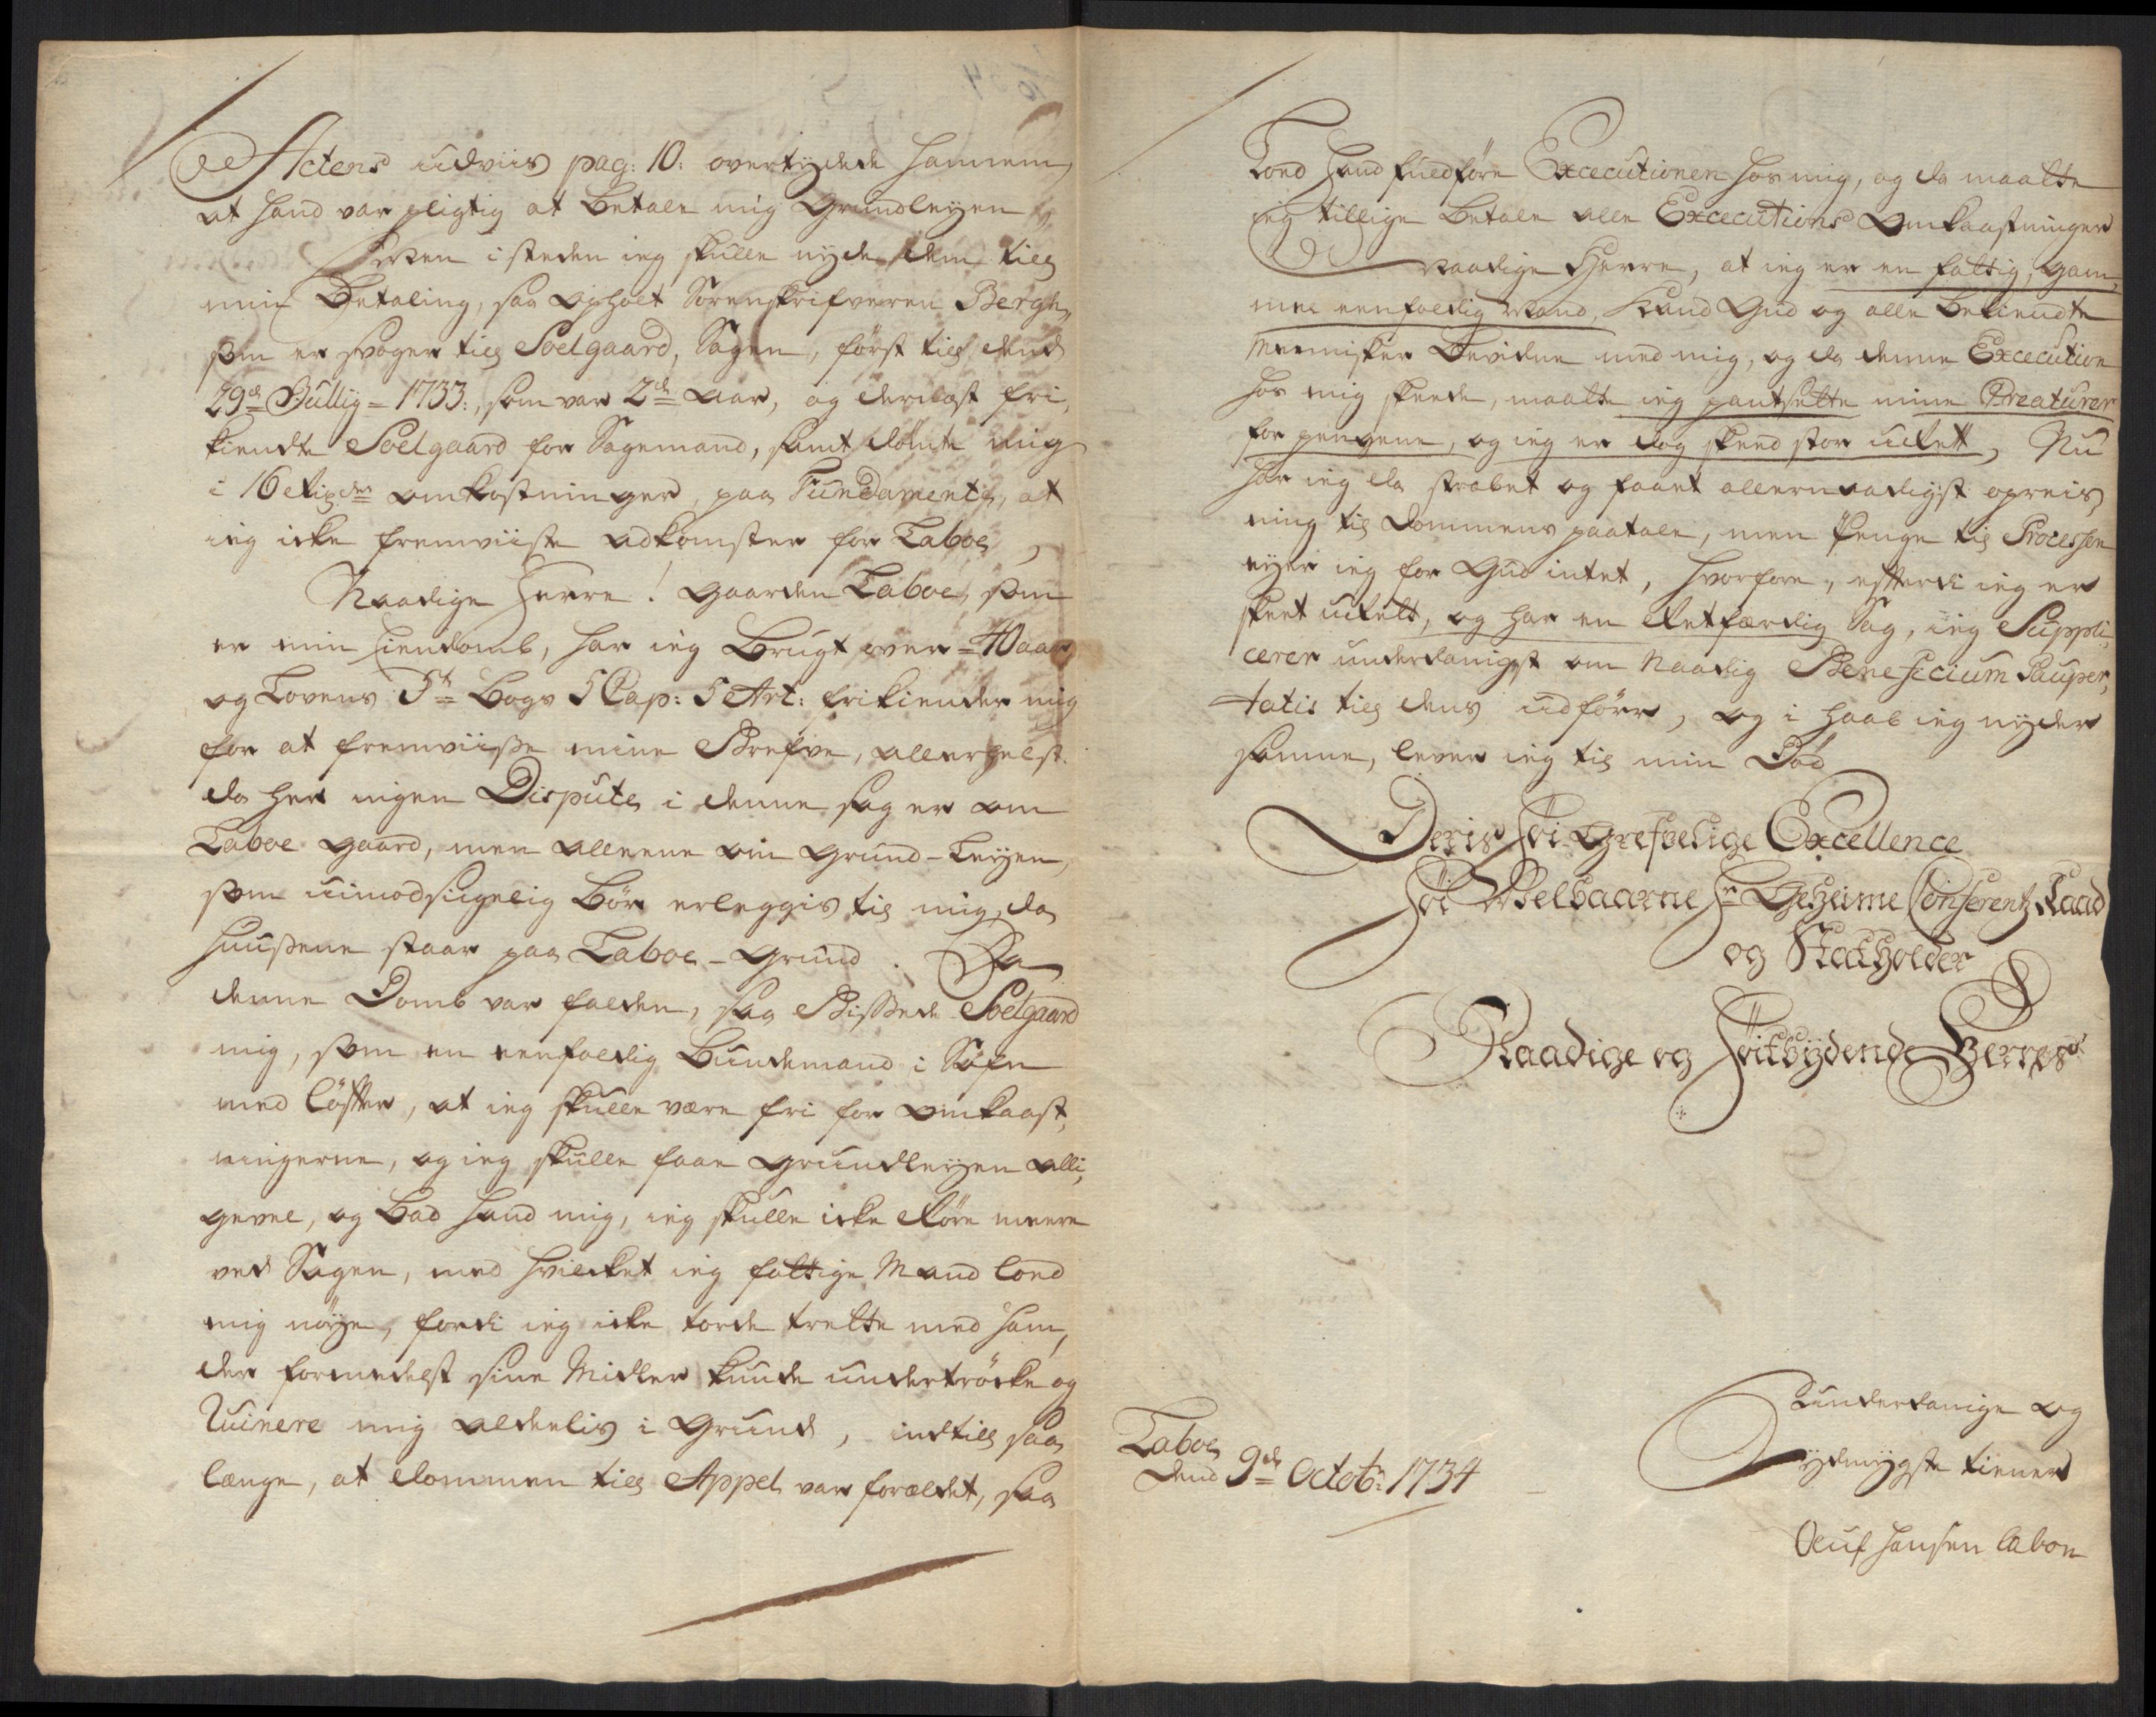 Actens udviis pag: 10: overtydede hannem,
at hand var pligtig at betale mig Grundleyen
Men i steden ieg skulle nyde dem till
min Betaling, saa opholt Sorenskrifveren Bergh,
som er svoger till Soelgaard, Sagen, først till dend
29de Jullÿ = 1733:, som var 2de Aar, og derilæst fri,
kiendte Soelgaard for Sagemand, samt dömte mig
i 16 Rixdr omkostninger, paa Fundamente, at
ieg icke fremviiste adkomster for Laboe,
Naadige Herre! Gaarden Laboe, som
er min Eiendomb, har ieg brugt over = 40 aar
og Lovens 5te Bogs 5 Cap: 5 Art: frikiender mig
for at fremviisse mine Brefve, allerhelst
da her ingen Dispute i denne sag er om
Laboe gaard, men alleene om Grund-Leyen,
som uimodsigelig bör erleggis til mig, da
huussene staar paa Laboe-Grund. Da
denne Domb var falden, saa Bissede Soelgaard
mig, som en eenfoldig Bundemand i Søfn
med löfter, at ieg skulle være fri for omkaast,
ningerne, og ieg skulle faae grundleyen alli,
gevel, og bad hand mig, ieg skulle icke röre meere
ved Sagen, med hvilcket ieg fattige Mand lood
mig nöye, fordi ieg icke torde trette med ham,
der formedelst sine Midler kunde undertröcke og
Ruinere mig aldelis i Grund, indtill saa
længe, at dommen till Appel var forældet, saa
Lood hand fuldföre Excecutionen hos mig, og da maatte
ieg tillige betale alle Excecutions Omkaastninger
Naadige Herre, at ieg er en fattig, gam,
mel eenfoldig Mand, Kand Gud og alle bekiendte
Mennisker bevidne med mig, og da denne Excecution
hos mig skeede, maatte ieg pantsette mine Creaturer
for pengene, og ieg er dog skeed stor uRett, Nu
har ieg da strabet og faaet allernaadigst opreis,
ning til Dommens paatale, men Penge til Processen
eyer ieg for Gud intet, hvorfore, effterdi ieg er
skeet uRett, og har en Retfærdig Sag, ieg Suppli,
cerer underdanigst om Naadig Beneficium Pauper,
tatis till dens udförr, og i haab ieg nyder
samme, lever ieg til min Död
Deris Höi-Grefvelige Excellence
Höi Velbaarne Hr Geheime Conferentz Raad
og Statholder
Naadige og Höitbydende Herres
Laboe
dend 9de Octobr: 1734
underdanige og
ydmygste tienere
Oluf Hansen Laboe